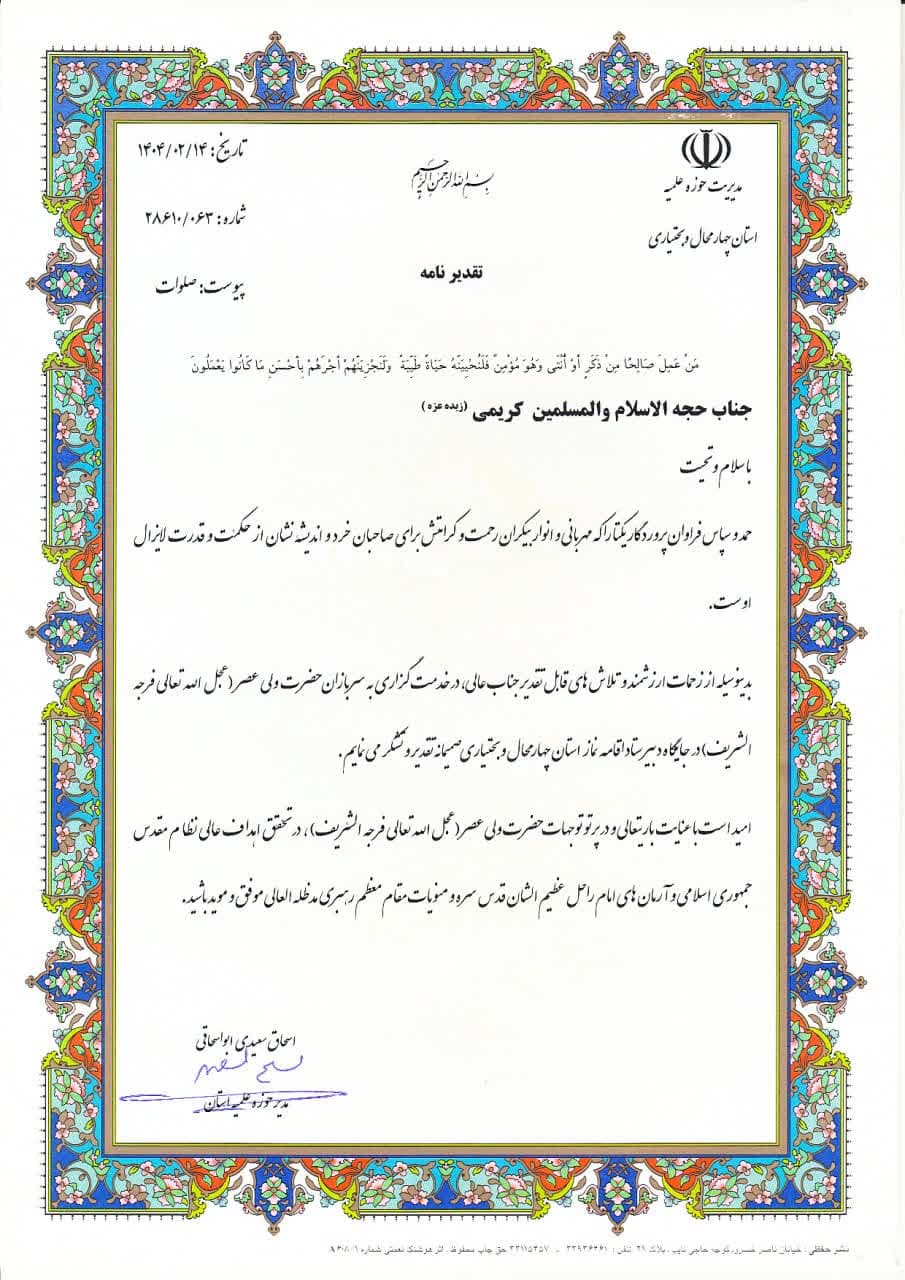 بسم الله الرحمن الرحیم
مدیریت حوزه علمیه
استان چهارمحال و بختیاری
تاریخ: ۱۴۰۴/۰۲/۱۴
شماره: ۲۸۶۱۰/۰۶۳
پیوست: صلوات
تقدیر نامه
مَنْ عَمِلَ صَالِحًا مِنْ ذَكَرٍ أَوْ أُنْثَى وَهُوَ مُؤْمِنٌ فَلَنُحْيِيَنَّهُ حَيَاةً طَيِّبَةً وَلَنَجْزِيَنَّهُمْ أَجْرَهُمْ بِأَحْسَنِ مَا كَانُوا يَعْمَلُونَ
جناب حجه الاسلام والمسلمین کریمی (زیده عزه)
باسلام و تحیت
حمد و سپاس فراوان پروردگار یکتا را که مهربانی و انوار بیکران رحمت و کرامتش برای صاحبان خرد و اندیشه نشان از حکمت و قدرت لایزال
اوست.
بدینوسیله از زحمات ارزشمند و تلاش های قابل تقدیر جناب عالی، در خدمت گزاری به سربازان حضرت ولی عصر(عجل الله تعالی فرجه
الشریف) در جایگاه دبیر ستاد اقامه نماز استان چهارمحال و بختیاری صمیمانه تقدیر و تشکر می نمایم.
امید است با عنایت باریتعالی و در پرتو توجهات حضرت ولی عصر(عجل الله تعالی فرجه الشریف)، در تحقق اهداف عالی نظام مقدس
جمهوری اسلامی و آرمان های امام راحل عظیم الشان قدس سره و منویات مقام معظم رهبری مدظله العالی موفق و موید باشید.
اسحاق سعیدی ابواسحاقی
مدیر حوزه علمیه استان
نشر حفظی : خیابان ناصر خسرو، کوچه حاجی نایب، پلاک ۲۹ تلفن : ۳۳۹۳۶۲۶۱ - ۳۳۱۱۵۳۵۷ حق چاپ محفوظ . اثر هوشنگ نعمتی شماره ۸۶۰۸/۱